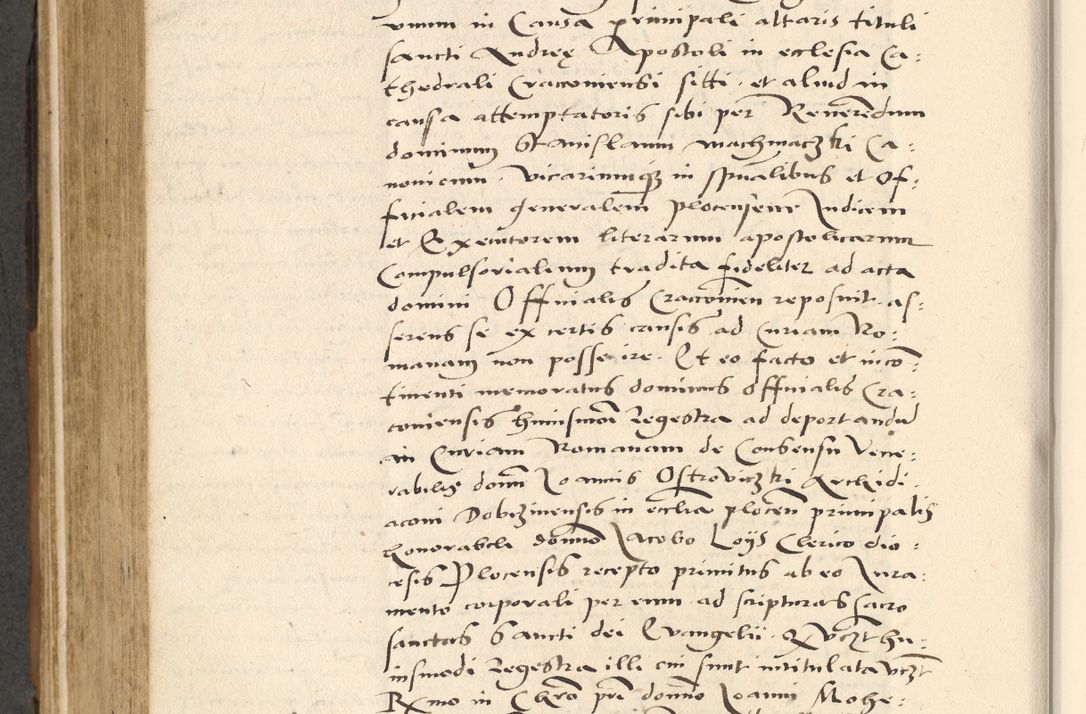 vnum in Causa principali altaris tituli
sancti Andreę Apostoli in ecclesia Ca:
thedrali Cracoviensi sitti. et aliud in
causa attemptatoris sibi per Reuerendum
dominum Stanislaum Ca:
nonicum. Vicariumq3 in spũalibus et Of:
ficialem generalem plocensem Iudicem
et Executorem literarum apostolicarum
Compulsorialium tradita fideliter ad acta
domini Officialis Cracouien reposuit. as:
serens se ex certis causis ad Curiam Ro:
manam non posse ire. Et eo facto et incõ:
tinenti memoratus dominus officialis Cra:
couiensis huiusmõi Regestra ad deportandũ
in Curiam Romanam de Consensu Vene:
rabilis domi Ioannis Ostroviczki Archidi:
aconi Dobrzinensis in ecclia plocen principalis
honorabili domno Iacobo Loijs Clerico dio:
cesis Plocensis recepto primitus ab eo Iura:
mento corporali per eum ad scripturas sacro
sanctas Sancti dei Evangelii. Q vczt hu:
iusmodi Regestra illi cui sunt intitulata vczt
Rmo in Chro pri domno Ioanni Mohe: